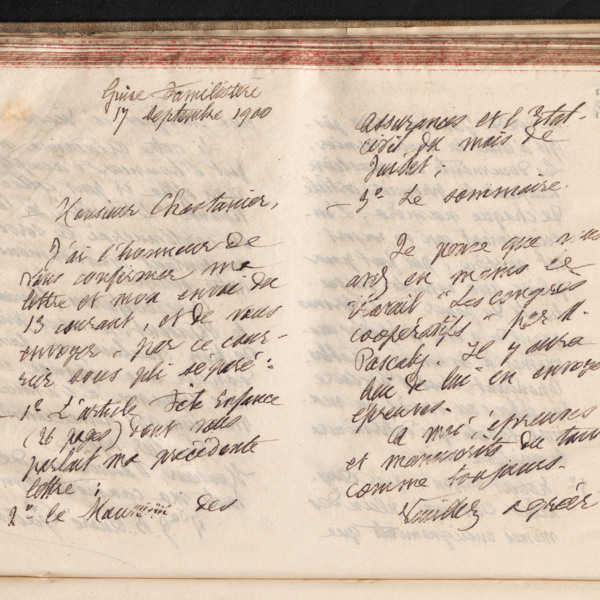 Guise Familistère
17 Septembre 1900
Monsieur Chastanier,
J'ai l'honneur de
vous confirmer ma
lettre et mon envoi du
13 courant, et de vous
envoyer, par ce cour-
rier sous pli séparé :
1º L'article Fête Enfance
(26 pages) dont vous
parlait ma précédente
lettre ;
2º le des
assurances et l'Etat-
civil du mois de
Juillet ;
3º Le sommaire.
Je pense que v/s
avez en mains le
travail "Les congrès
coopératifs" par M.
Pascaly. Il y aura
lieu de lui en envoyer
épreuves.
A moi, épreuves
et manuscrits du tout
comme toujours.
Veuillez agréer